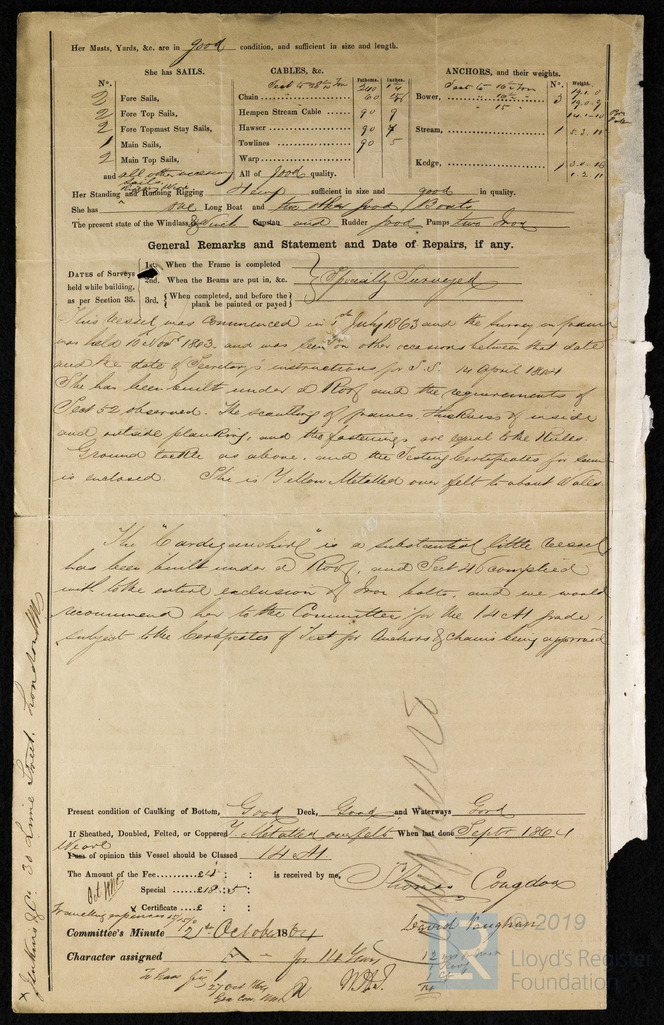 Her Masts, Yards, &c. are in good condition, and sufficient in size and length.
She has SAILS.
CABLES, &c.
ANCHORS, and their weights.
No.
Fathoms.
Inches.
No.
Weight.
2 Fore Sails,
2 Fore Top Sails,
2 Fore Topmast Stay Sails,
1 Main Sails,
2 Main Top Sails,
and all other necessary sails
Test to 28 Ton
Chain 240
60
Hempen Stream Cable 90 9
Hawser 90 7
Towlines 90 5
Warp
All of good quality.
Bower, 3
Stream, 1
Kedge, 1
Her Standing and Running Rigging Hemp sufficient in size and good in quality.
She has one Long Boat and two other good Boats
The present state of the Windlass, & Winch Capstan and Rudder good Pumps two Iron
General Remarks and Statement and Date of Repairs, if any.
DATES of Surveys held while building, as per Section 35.
1st. When the Frame is completed
2nd. When the Beams are put in, &c.
3rd. When completed, and before the plank be painted or payed
Specially Surveyed
This vessel was commenced in July 1863 and the survey in frame
was held 10 Novr 1863. and was seen on other occasions between that date
and the date of Secretary's instructions for S.S. 14 April 1864
She has been built under a Roof and the requirements of
Sect 52 observed. The scantling of frames, thickness of inside
and outside planking, and the fastenings are equal to the Rules
Ground tackle as above, and the Testing Certificates for same
is enclosed. She is Yellow Metalled over felt to about Wales.
The "Cardiganshire" is a substantial little vessel
has been built under a Roof, and Sect 46 complied
with to the entire exclusion of Iron bolts, and we would
recommend her to the Committee for the 14 A1 grade,
subject to the Certificates of Test for Anchors & Chains being approved
Present condition of Caulking of Bottom, Good Deck, Good and Waterways Good
If Sheathed, Doubled, Felted, or Coppered Y Metalled over felt When last done Septr 1864
We are
I am of opinion this Vessel should be Classed 14 A1
The Amount of the Fee £4 is received by me,
Special £18 . 5
Certificate £
Travelling expenses
Thomas Congdon
David Vaughan
Committee's Minute 21st October 1864
Character assigned A for 14 Years
27 Oct
x Jenkins & Co 30 Lime Street. London
© 2019
Lloyd's Register
Foundation